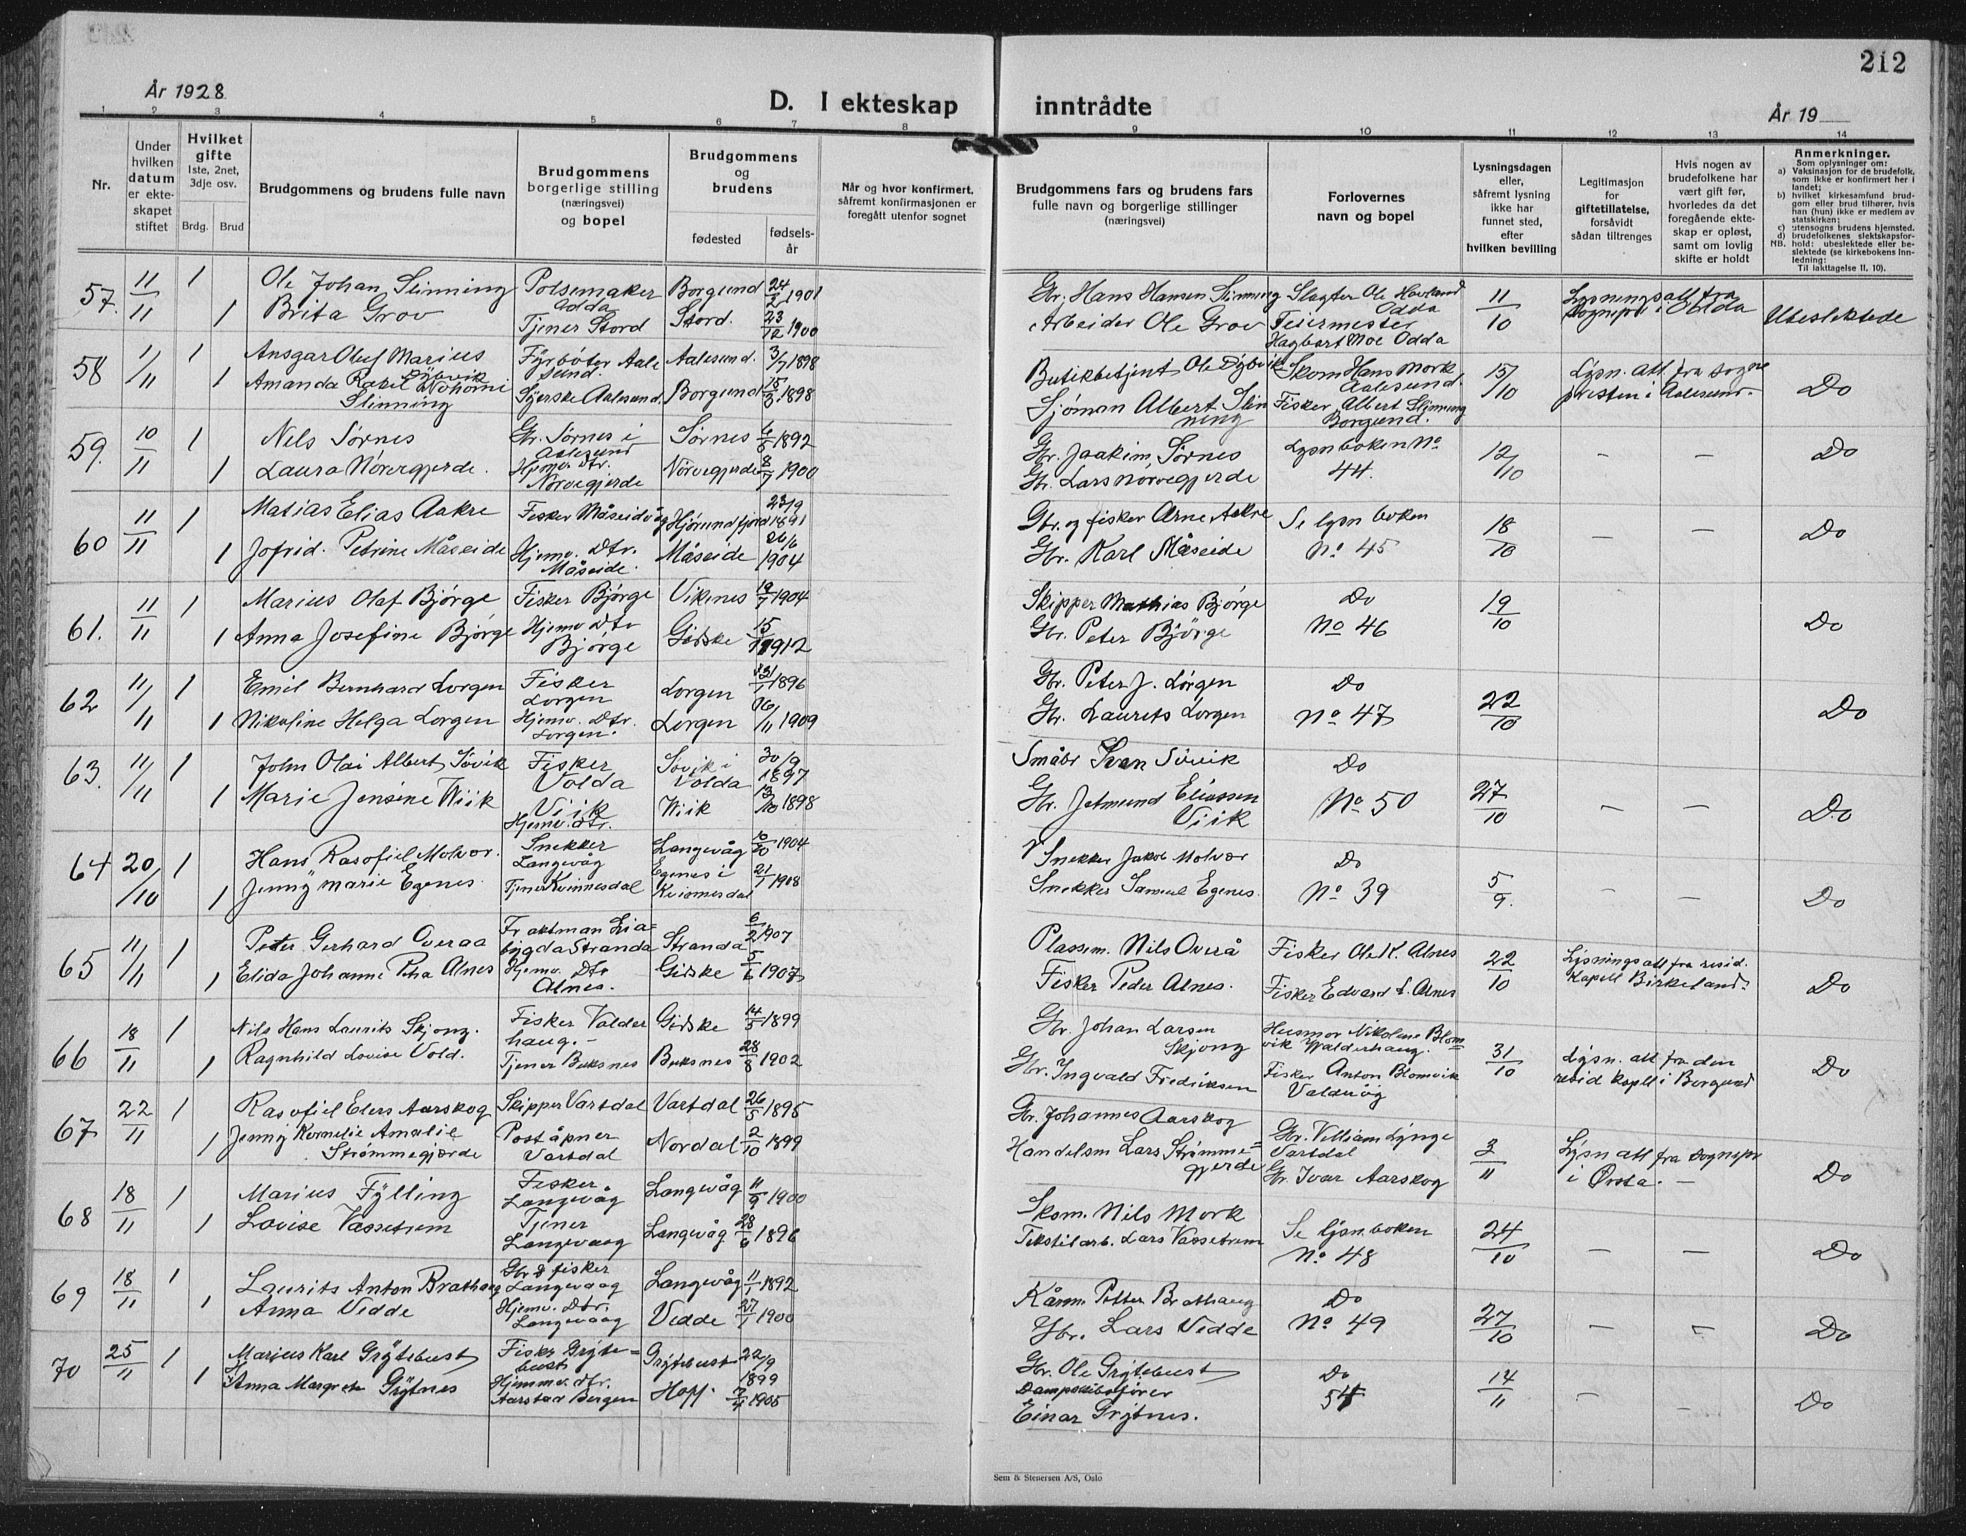 212
År 1928
D. I ekteskap inntrådte
År 19
1 2 3 4 5 6 7 8 9 10 11 12 13 14
Nr.
Under hvilken datum er ekteskapet stiftet
Hvilket gifte
1ste, 2net, 3dje osv.
Brdg. Brud
Brudgommens og brudens fulle navn
Brudgommens borgerlige stilling (næringsvei) og bopel
Brudgommens og brudens
fødested
fødselsår
Når og hvor konfirmert, såfremt konfirmasjonen er foregått utenfor sognet
Brudgommens fars og brudens fars fulle navn og borgerlige stillinger (næringsvei)
Forlovernes navn og bopel
Lysningsdagen eller, såfremt lysning ikke har funnet sted, efter hvilken bevilling
Legitimasjon for giftetillatelse, forsåvidt sådan tiltrenges
Hvis nogen av brudefolkene har vært gift før, hvorledes da det foregående ekteskap er opløst, samt om lovlig skifte er holdt
Anmerkninger.
Som oplysninger om:
a) Vaksinasjon for de brudefolk, som ikke er konfirmert her i landet;
b) hvilket kirkesamfund brudgom eller brud tilhører, hvis han (hun) ikke er medlem av statskirken;
c) utensogns brudens hjemsted.
d) brudefolkenes slektskapsforhold: ubeslektede eller beslektede (se kirkebokens innledning:
NB.
Til iakttagelse II, 10).
57. 11/11 1 Ole Johan Slinning Polsemaker Odda Borgund 24/2 1901 Gbr. Hans Hansen Slinning Slagter Ole Hovland Odda 11/10 Lysningsatt fra Sognepr i Odda Ubeslektede
1 Brita Grov Tjener Stord Stord. 23/12 1900 Arbeider Ole Grov Feiermester Hagbart Moe Odda
58 11/11 1 Ansgar Oluf Marius Dybvik Fyrbøter Aalesund. Aalesund. 3/7 1898 Butikbetjent Ole Dybvik Skom Hans Mork Aalesund. 15/10 Lysn. att. fra sognepresten i Aalesund. Do
1 Amanda Rakel Nohomi Slinning Syerske Aalesund. Borgund 1898 Sjöman Albert Slinning Fisker Albert Slinning Borgund.
59. 10/11 1 Nils Sørnes Gbr. Sørnes i Aalesund Sørnes 1892 Gbr. Joakim Sørnes Lysnboken No 44. 12/10 – – Do
1 Laura Nörvegjerde. Hjemv dtr. Norvegjerde Nörvegjerde 8/7 1900 Gbr. Lars Nörvegjerde
60 11/11 1 Matias Elias Aakre Fisker Måseidvåg Hjörundfjord 23/9 1891 Gbr. og fisker Arne Aakre Se lysn boken No 45 18/10 – – Do
1 Jofrid. Petrine Måseide Hjemv. Dtr. Måseide. Måseide 26/6 1904 Gbr. Karl Måseide
61. 11/11 1 Marius Olaf Bjørge Fisker Bjørge Viknes 19/7 1904 Skipper Mathias Bjørge Do No 46 19/10 Do
1 Anna Josefine Bjørge Hjemv Dtr Bjørge Giske 1912 Gbr. Peter Bjørge
62 11/11 1 Emil Bernhard Lorgen Fisker Lorgen Lorgen 1896 Gbr. Peter J. Lørgen Do No 47 22/10 Do
1 Nikoline Helga Lorgen Hjemv. Dtr. Lorgen. Lorgen 16/11 1909 Gbr. Laurits Lorgen
63. 11/11 1 John Olai Albert Søvik Fisker Volda Søvik i Volda 30/9 1897 Småbr Sven Søvik Do No 50 27/10 – – Do
1 Marie Jensine Wiik Viik Hjemv. dtr. Wiik 13/10 1898 Gbr. Jetmund Eliassen Viik
64 20/10 1 Hans Rasofiel Molvær. Snekker Langevåg Langevåg 10/10 1904 Snekker Jakob Molvær Do No 39 5/9. – – Do
1 Jenny Marie Egenes. Tjener Kvinnesdal Egenes i Kvinnesdal 21/1 1908 Snekker Samuel Egenes.
65 11/11 1 Peter Gerhard Overaa Fraktman Liabygda Stranda Stranda 6/2 1907 Plassm. Nils Overå Fisker Ole K. Alnes 22/10 Lysningsatt fra resid. kapell Birkeland. Do
1 Elida Johanne Petra Alnes Hjemv. Dtr Alnes. Giske 5/6 1907 Fisker Peder Alnes. Fisker Edvard L. Alnes
66 18/11 1 Nils Hans Laurits Skjong. Fisker Valderhaug. – Giske 14/5 1899 Gbr. Johan Larsen Skjong Husmor Nikoline Blomvik Walderhaug. 31/10 Lysn. att fra den resid kapll i Borgund Do
1 Ragnhild Lovise Vold. Tjener Buksnes Buksnes 28/8 1902 Gbr. Ingvald Fredriksen Fisker Anton Blomvik Valderøg
67 22/11 1 Rasofiel Elers Aarskog Skipper Vartdal Vartdal 26/5 1895 Gbr. Johannes Aarskog Gbr. Villiam Lynge Vartdal 3/11 Lysn att fra sognepr i Ørsta. – Do
1 Jenny Kornelie Amalie Strømmegjerde Poståpner Vartdal Nordal 2/10 1899 Handelsm Lars Strømmegjerde Gbr. Ivar Aarskog
68 18/11 1 Marius Fylling Fisker Langevåg Langevåg 11/9 1900 Skom. Nils Mork Se lysn. boken No 48 24/10 – – Do
1 Lovise Vassetrem Tjener Langevaag Langevåg 1896 Tekstilarb. Lars Vassetrem
69 18/11 1 Laurits Anton Brathaug Gbr & fisker Langevaag Langevåg 11/1 1892 Kårm. Petter Brathaug Do No 49 27/10 – – Do
1 Anna Vedde Hjemv. Dtr. Langevaag Vedde 27/1 1900 Gbr. Lars Vedde
70 25/11 1 Marius Karl Grytebust Fisker Grytebust Grytebust 22/9 1899 Gbr. Ole Grytebust Do 14/11 – – Do
1 Anna Margrete Grytnes Hjemmv. dtr. Aarstad Bergen Hopp. 1905 Dampskibsfører Einar Grytnes.
Sem & Stenersen A/S, Oslo